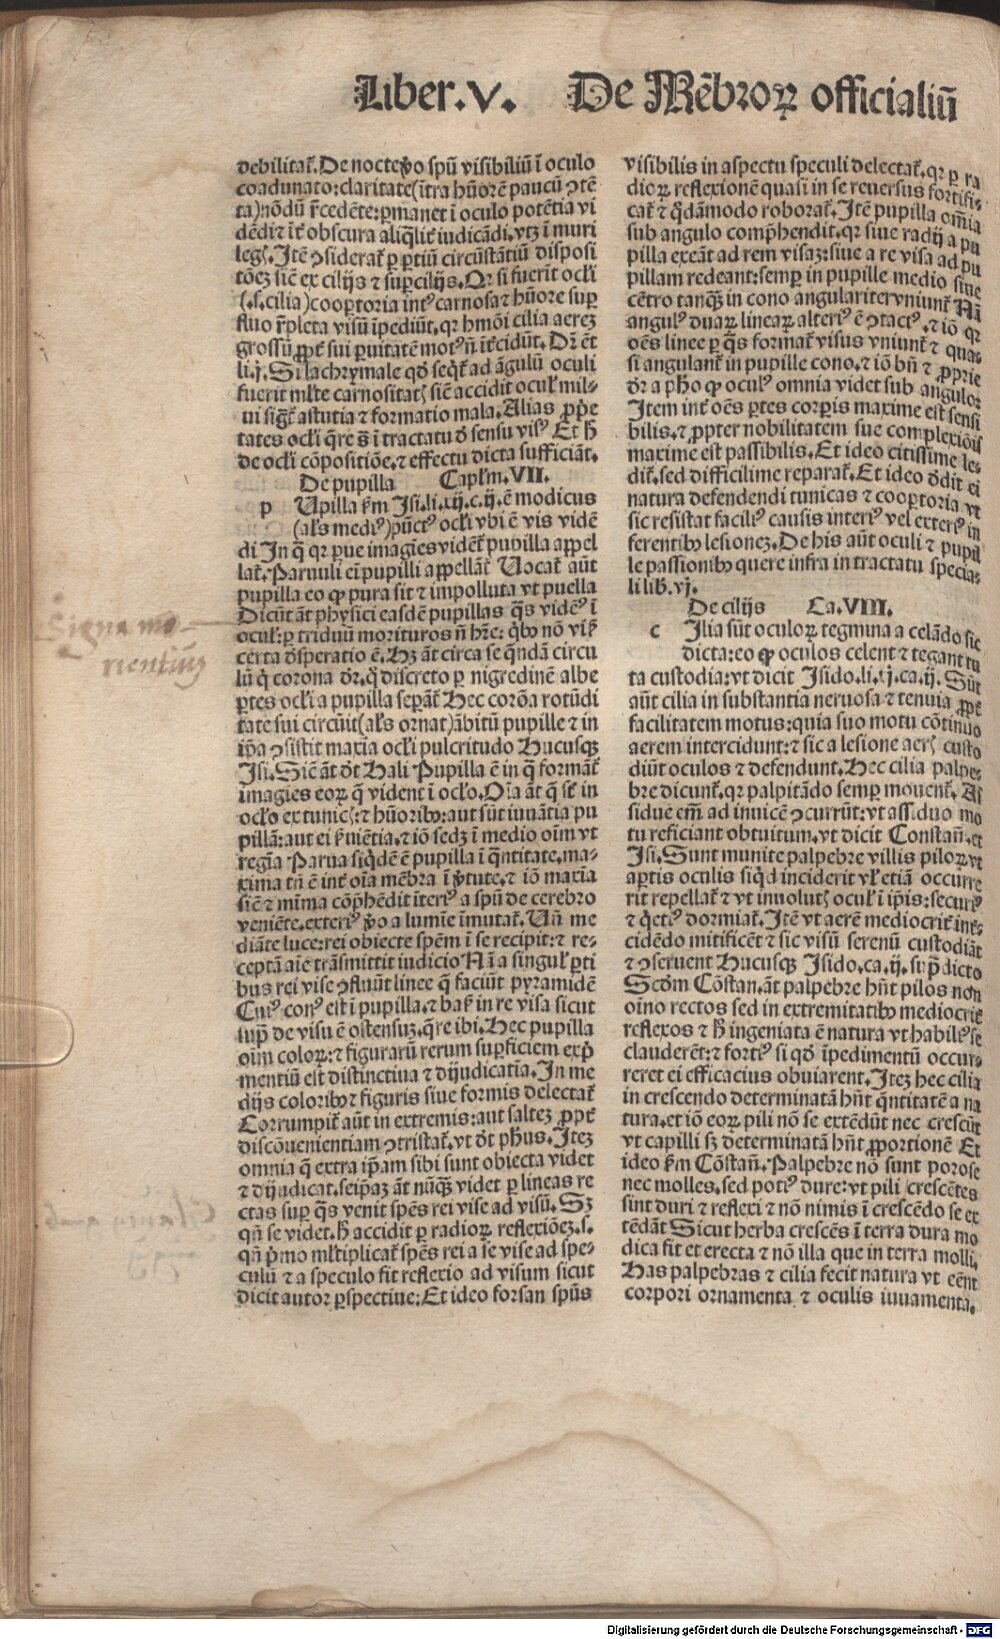 Liber.V. De Mēbroꝝ officialiū
debilitat̄. De nocte ꝟo spū visibiliū ī oculo
coadunato: claritate (ītra hūorē paucū ꝯtē
ta) nōdū r̄cedēte: ꝑmanet ī oculo potētia vi
dēdi ⁊ īt̄ obscura aliq̄lit̄ iudicādi. vtꝫ ī muri
legꝰ. Itē ꝯsiderat̄ ꝑ ꝑtiū circūstātiū disposi
tōeꝫ sic̄ ex cilijs ⁊ suꝑcilijs. Qꝛ si fuerit ocl'i
(.s. cilia) cooꝑtoria int̄ꝰ carnosa ⁊ hūore suꝑ
fluo r̄pleta visū īpediūt. qꝛ hmōi cilia aereꝫ
grossū ꝓpt̄ sui ꝑuitatē motꝰ n̄ īt̄cidūt. Dr̄ ēt
li.j. Si lachrymale qd̄ seq̄t̄ ad āgulū oculi
fuerit ml'te carnositatꝭ sic̄ accidit ocul' mil-
ui sigt̄ astutia ⁊ formatio mala. Alias ꝓpe
tates ocl'i q̄re s̄ ī tractatu d̄ sensu visꝰ Et h̄
de ocl'i cōpositiōe. ⁊ effectu dicta sufficiāt.
De pupilla Capl'm. VII.
p Upilla km̄ Isi. li. xij. c. ij. ē modicus
(al's mediꝰ) pūctꝰ ocl'i vbi ē vis vidē
di In q̄ qꝛ ꝑue imagīes vidēt̄ pupilla appel
lat̄. Paruuli eī pupilli appellāt̄ Uocat̄ aūt
pupilla eo ꝙ pura sit ⁊ impolluta vt puella
Dicūt āt physici easdē pupillas q̄s vidēꝰ ī
ocul': ꝑ triduū morituros n̄ hr̄e: qͥbꝰ nō vis̄
certa d̄speratio ē. Hꝫ āt circa se q̄ndā circu
lū qͥ corona dr̄. qͥ discreto ꝑ nigredinē albe
ꝑtes ocl'i a pupilla seꝑat̄ Hec corōa rotūdi
tate sui circūit (al's ornat) ābitū pupille ⁊ in
ip̄a ꝯsistit maxīa ocl'i pulcritudo Hucusqꝫ
Isi. Sic̄ āt dt̄ Hali Pupilla ē in q̄ format̄
imagīes eoꝝ q̄ vident ī ocl'o. Oīa āt q̄ st̄ in
ocl'o ex tunicꝭ: ⁊ hūoribꝰ: aut sūt iuuātia pu
pillā: aut ei ꝯueniētia. ⁊ iō sedꝫ ī medio oīm vt
regīa Parua siqͥdē ē pupilla ī q̄ntitate. ma-
xima tn̄ ē int̄ oīa mēbra ī ꝟtute. ⁊ iō maxīa
sic̄ ⁊ mīma cōp̄hēdit īteriꝰ a spū de cerebro
veniēte. exteriꝰ ꝟo a lumīe īmutat̄. Un̄ me
diāte luce: rei obiecte spēm ī se recipit: ⁊ re-
ceptā aīe trāsmittit iudicio Nā a singul' ꝑti
bus rei vise ꝯfluūt linee q̄ faciūt pyramidē
Cuiꝰ conꝰ est ī pupilla. ⁊ basis in re visa sicut
sup̄ de visu ē ostensuꝫ. q̄re ibi. Hec pupilla
oīm coloꝝ: ⁊ figurarū rerum suꝑficiem exp̄
mentiū est distinctiua ⁊ dijudicatiua. In me
dijs coloribꝰ ⁊ figuris siue formis delectat̄
Corrumpit̄ aūt in extremis: aut salteꝫ ꝓpt̄
discōuenientiam ꝯtristat̄. vt dt̄ ph̄us. Iteꝫ
omnia q̄ extra ip̄am sibi sunt obiecta videt
⁊ dijudicat. seip̄aꝫ āt nūqꝫ videt ꝑ lineas re
ctas suꝑ q̄s venit spēs rei vise ad visū. Sꝫ
qn̄ se videt. h̄ accidit ꝑ radioꝝ reflexiōeꝫ. s.
qn̄ pͥmo ml'tiplicat̄ spēs rei a se vise ad spe-
culū ⁊ a speculo fit reflexio ad visum sicut
dicit autor ꝑspectiue: Et ideo forsan spūs
visibilis in aspectu speculi delectat̄. qꝛ ꝑ ra
dioꝝ reflexionē quasi in se reuersus fortifi-
cat̄ ⁊ qͥdāmodo roborat̄. Itē pupilla om̄ia
sub angulo comp̄hendit. qꝛ siue radij a pu
pilla exeāt ad rem visaꝫ: siue a re visa ad pu
pillam redeant: semꝑ in pupille medio siue
cētro tanqꝫ in cono angulariter vniunt̄ Nā
angulꝰ duaꝝ lineaꝝ alteriꝰ ē ꝯtactꝰ. ⁊ iō qꝛ
oēs linee ꝑ q̄s format̄ visus vniunt̄ ⁊ qua-
si angulant̄ in pupille cono. ⁊ iō bn̄ ⁊ ꝓprie
dr̄ a ph̄o ꝙ oculꝰ omnia videt sub angulo:
Item int̄ oēs ꝑtes corꝑis maxime est sensi
bilis. ⁊ ꝓpter nobilitatem sue complexiōis
maxime est passibilis. Et ideo citissime le-
dit̄. sed difficilime reparat̄. Et ideo d̄dit ei
natura defendendi tunicas ⁊ cooꝑtoria vt
sic resistat faciliꝰ causis interiꝰ vel exteriꝰ in
ferentibꝰ lesioneꝫ. De his aūt oculi ⁊ pupil
le passionibꝰ quere infra in tractatu specia-
li lib. vj.
De cilijs Ca. VIII.
c Ilia sūt oculoꝝ tegmina a celādo sic
dicta: eo ꝙ oculos celent ⁊ tegant tu
ta custodia: vt dicit Isido. li. ij. ca. ij. Sūt
aūt cilia in substantia neruosa ⁊ tenuia ꝓpt̄
facilitatem motus: quia suo motu cōtinuo
aerem intercidunt: ⁊ sic a lesione aerꝭ custo
diūt oculos ⁊ defendunt. Hec cilia palpe-
bre dicunt̄. qꝛ palpitādo semꝑ mouent̄. As
sidue em̄ ad inuicē ꝯcurrūt: vt assiduo mo
tu reficiant obtuitum. vt dicit Constan̄. et
Isi. Sunt munite palpebre villis piloꝝ vt
aꝑtis oculis siqͥd inciderit vl' etiā occurre
rit repellat̄ ⁊ vt inuolutꝭ ocul' ī ip̄is: securiꝰ
⁊ qͥetiꝰ dormiat̄. Itē vt aerē mediocrit̄ int̄-
cidēdo mitificēt ⁊ sic visū serenū custodiāt
⁊ ꝯseruent Hucusqꝫ Isido. ca. ij. sup̄dicto
Scd̄m Cōstan. āt palpebre hn̄t pilos non
oīno rectos sed in extremitatibꝰ mediocrit̄
reflexos ⁊ h̄ ingeniata ē natura vt habiliꝰ se
clauderēt: ⁊ fortiꝰ si qd̄ īpedimentū occur-
reret ei efficacius obuiarent. Iteꝫ hec cilia
in crescendo determinatā hn̄t q̄ntitatē a na
tura. et iō eoꝝ pili nō se extēdūt nec crescūt
vt capilli sꝫ determinatā hn̄t ꝓportionē Et
ideo km̄ Cōstan̄. Palpebre nō sunt porose
nec molles. sed potiꝰ dure: vt pili crescētes
sint duri ⁊ reflexi ⁊ nō nimis ī crescēdo se ex
tēdāt Sicut herba crescēs ī terra dura mo
dica fit et erecta ⁊ nō illa que in terra molli.
Has palpebras ⁊ cilia fecit natura vt eēnt
corpori ornamenta ⁊ oculis iuuamenta.
Signa mo-
rientiuꝫ
Digitalisierung gefördert durch die Deutsche Forschungsgemeinschaft - DFG